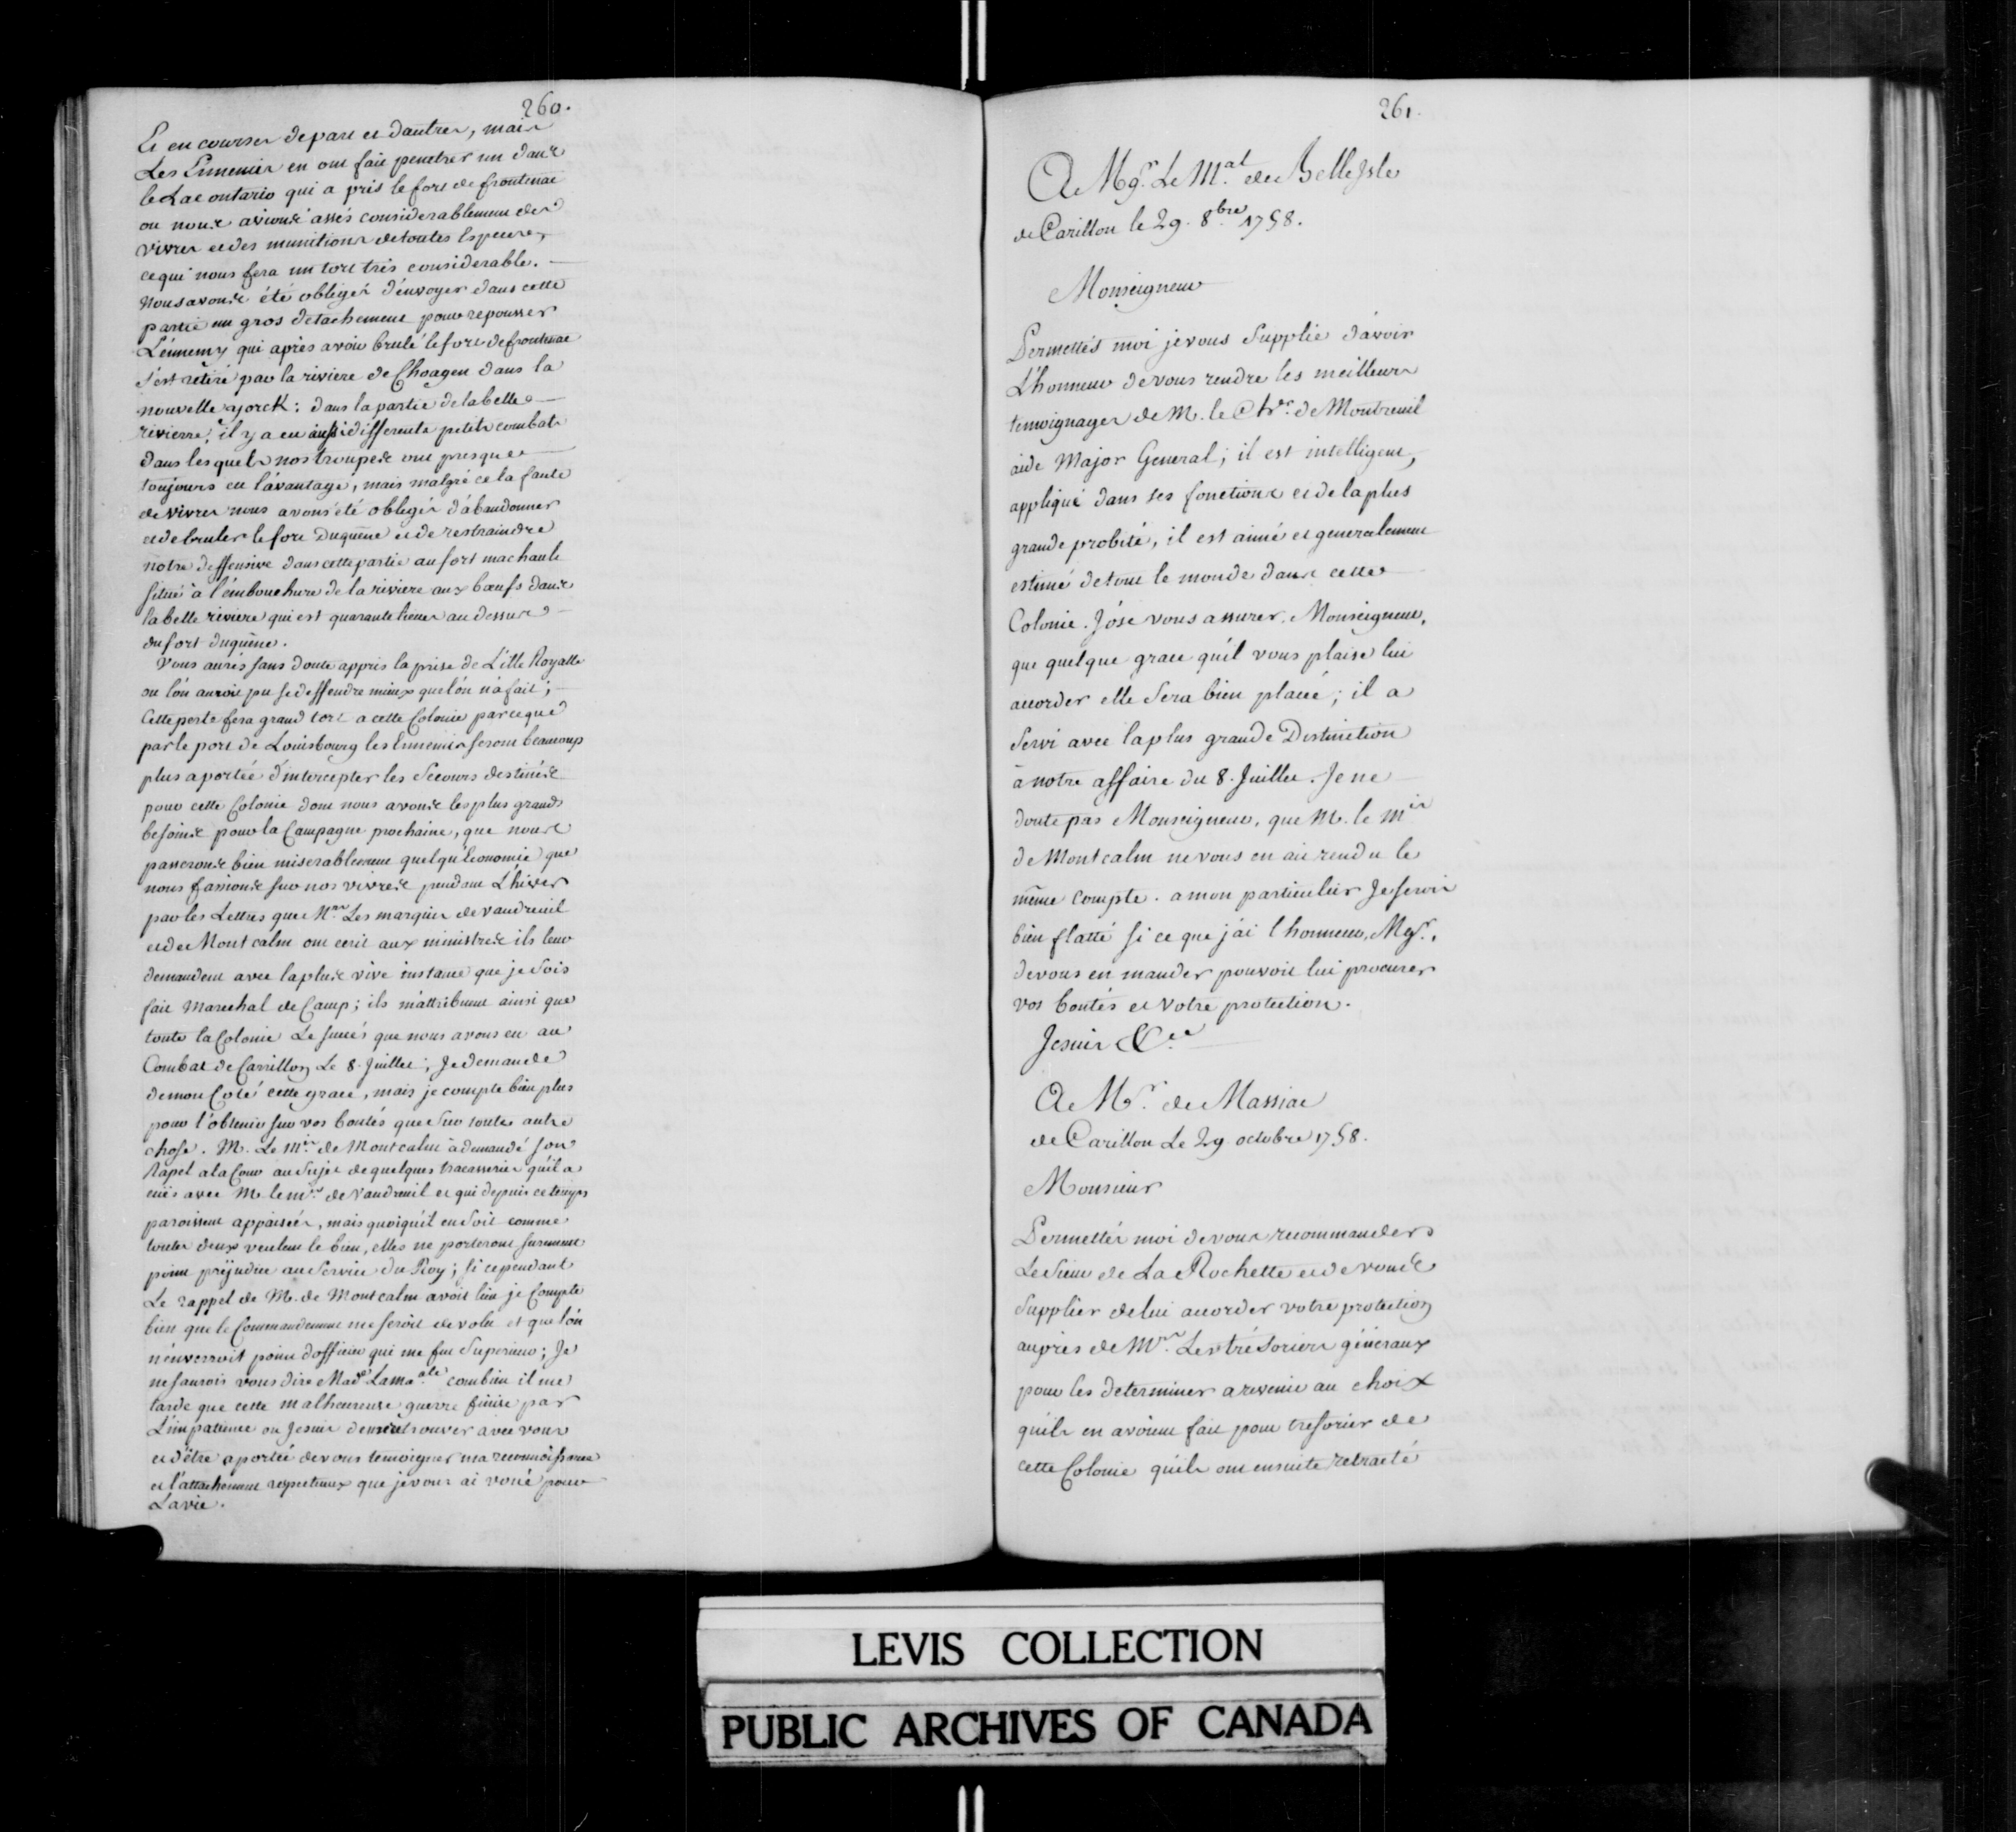 260.
Et en courses de part et d'autres, mais
Les Ennemis en ont fait penetrer un dans
le Lac ontario qui a pris le fort de frontenac
ou nous avions assés considerablement des
vivres et des munitions de toutes Especes,
ce qui nous fera un tort très considerable.
Nous avons été obligés d'envoyer dans cette
partie un gros detachement pour repousser
L'énnemy qui après avoir brulé le fort de frontenac
s'est rétiré par la riviere de Choagen dans la
nouvelle yorck; dans la partie de la belle
rivierre, il y a eu aussi differents petits combats
dans lesquels nos troupes ont presque
toujours eu l'ávantage, mais malgré cela faute
de vivres nous avons été obligés d'ábandonner
et de bruler le fort Duquêne et de restraindre
notre deffensive dans cette partie au fort machault
situé à l'émbouchure de la riviere aux boeufs dans
la belle riviere qui est quarante lieues au dessus
du fort duquêne.
Vous aurés sans doute appris la prise de L'ille Royalle
ou l'ón auroit pu se deffendre mieux que l'ón n'a fait;
Cette perte fera grand tort a cette Colonie parceque
par le port de Louisbourg les Ennemis seront beaucoup
plus aportée d'intercepter les Secours destinés
pour cette Colonie dont nous avons les plus grands
besoins pour la Campagne prochaine, que nous
passerons bien miserablement quelqu'économie que
nous fassions sur nos vivres pendant L'hiver
par les Lettres que Mrs Les marquis de vaudreuil
et de Montcalm ont ecrit aux ministres ils leur
demandent avec la plus vive instance que je sois
fait Marechal de Camp; ils m'attribuent ainsi que
toute la Colonie Le succés que nous avons eu au
Combat de Carrillon Le 8. Juillet; Je demande
de mon Coté cette grace, mais je compte bien plus
pour l'obtenir sur vos bontés que sur toute autre
chose. M. Le Mis de Montcalm à demandé son
Rapel a la Cour au Sujet de quelques tracasseries qu'il a
eües avec M. le mis de Vaudreuil et qui depuis ce temps
paroissent appaisées, mais quoiqu'il en Soit comme
toutes deux veulent le bien, elles ne porteront surement
point prejudice au Service du Roy; si cependant
Le rappel de M. de Montcalm avoit lieu je Compte
bien que le Commandement me seroit devolu et que l'ón
n'énverroit point d'officier qui me fut Superieur; Je
ne saurois vous dire Made Lamaale combien il me
tarde que cette malheureuse guerre finisse par
L'impatience ou Jesuis de me retrouver avec vous
et d'être aportée de vous temoigner ma reconnoissance
et l'attachement respectueux que je vous ai voué pour
La vie.
261.
A Mgr. Le Mal de Belle Jsle
de Carillon le 29. 8bre 1758.
Monseigneur
Permettés moi je vous Supplie d'ávoir
L'honneur de vous rendre les meilleurs
temoignages de M. le Cher de Montreuil
aide Major General; il est intelligent,
appliqué dans ses fonctions et de la plus
grande probité, il est aimé et generalement
estimé de tout le monde dans cette
Colonie. J'óse vous assurer, Monseigneur,
que quelque grace qu'il vous plaise lui
accorder elle Sera bien placée; il a
Servi avec la plus grande Distinction
à notre affaire du 8. Juillet. Je ne
doute pas Monseigneur, que M. le Mis
de Montcalm ne vous en ait rendu le
même compte. a mon particulier Je serois
bien flatté si ce que j'ái l'honneur, Mgr.,
de vous en mander pouvoit lui procurer
vos bontés et votre protection.
Jesuis &ca
A Mr. de Massiac
de Carillon Le 29 octobre 1758.
Monsieur
Permettés moi de vous recommander
Le Sieur de La Rochette et de vous
Supplier de lui accorder votre protection
auprès de Mrs. Les trésoriers généraux
pour les determiner a revenir au choix
qu'ils en avoient fait pour tresorier de
cette Colonie qu'ils ont ensuite retracté
LEVIS COLLECTION
PUBLIC ARCHIVES OF CANADA